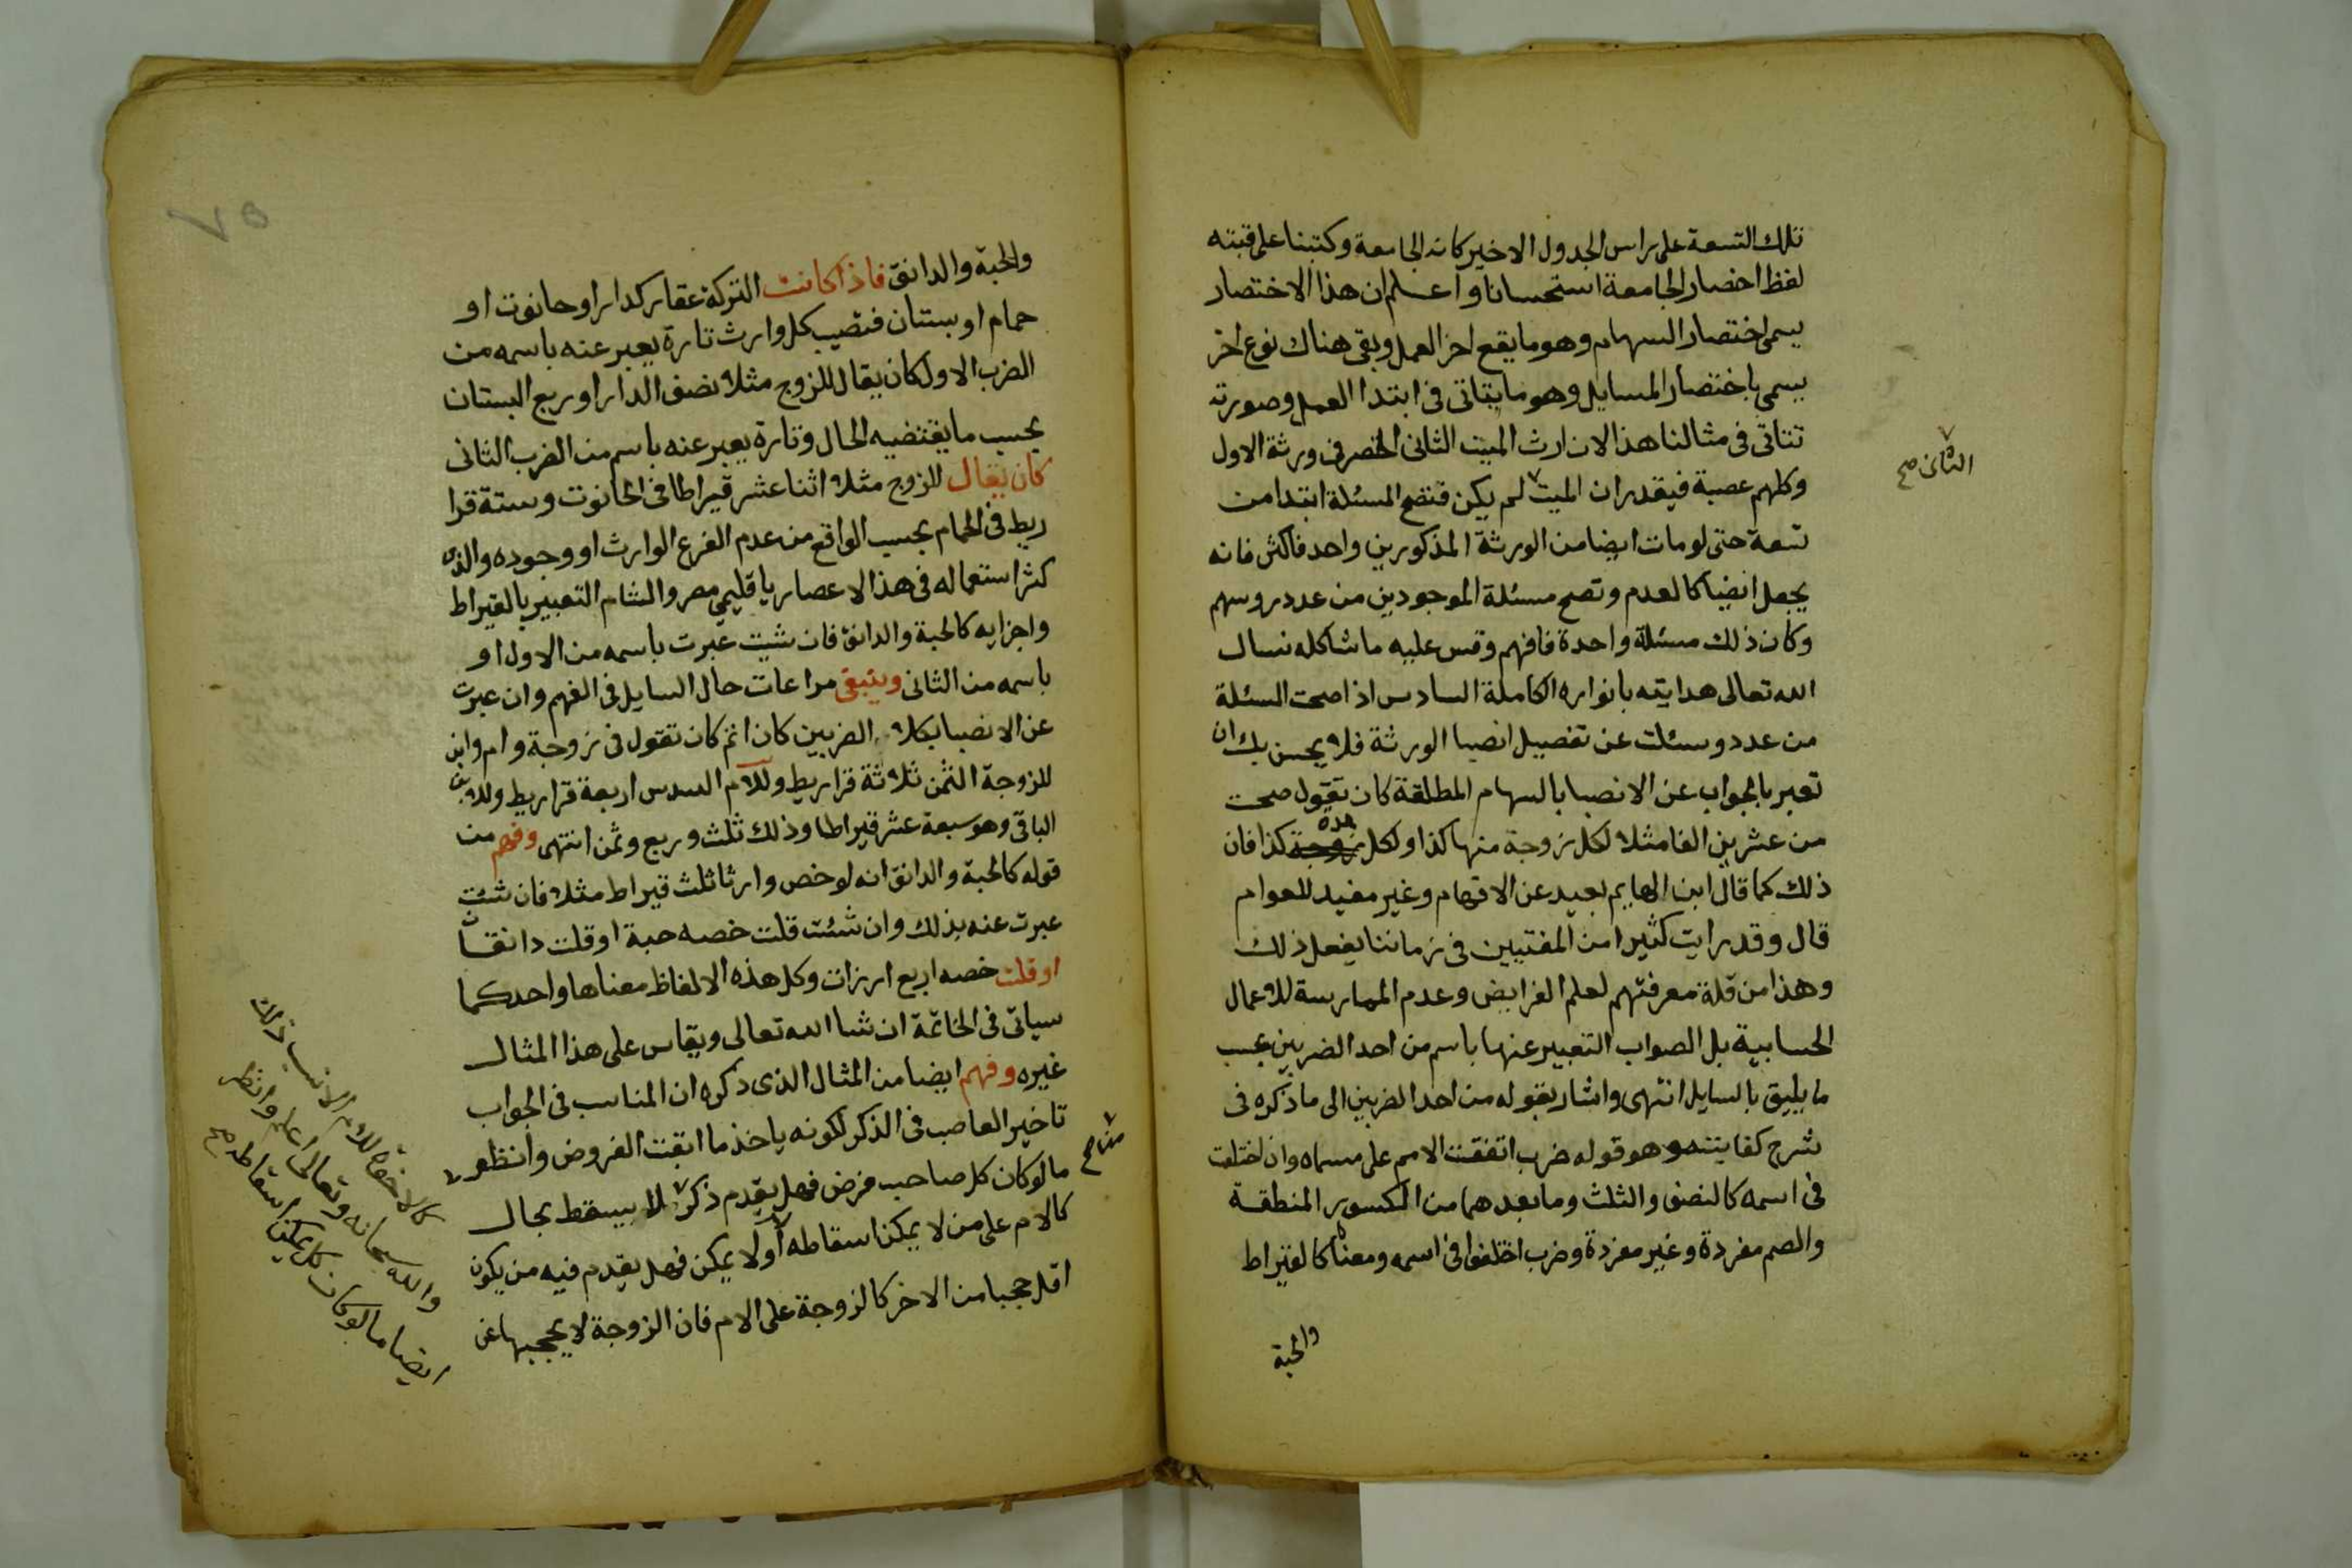 تلك التسعة على راس الجدول الاخير كانه الجامعة وكتبنا على قبته
لفظ اخصار الجامعة استحسانا واعلم ان هذا الاختصار
يسمى اختصار السهام وهو ما يقع اخر العمل وبقى هناك نوع اخر
يسمى باختصار المسايل وهو ما يتاتى فى ابتدا العمل وصورته
تتاتى فى مثالنا هذا لان ارث الميت الثانى انحصر فى ورثة الاول
وكلهم عصبة فيقدر ان الميت لم يكن فتصح المسئلة ابتدا من
الثانى صح
تسعة حتى لو مات ايضا من الورثة المذكورين واحد فاكثر فانه
يجعل ايضا كالعدم وتصح مسئلة الموجودين من عدد روسهم
وكان ذلك مسئلة واحدة فافهم وقس عليه ما شاكله نسال
الله تعالى هدايته بانواره الكاملة السادس اذا صحت المسئلة
من عدد وسئلت عن تفصيل انصبا الورثة فلا يحسن بك ان
تعبر بالجواب عن الانصبا بالسهام المطلقة كان تقول صحت
من عشرين الفا مثلا لكل زوجة منها كذا ولكل زوجة جدة كذا فان
ذلك كما قال ابن الهايم بعيد عن الافهام وغير مفيد للعوام
قال وقد رايت كثيرا من المفتيين فى زماننا يفعل ذلك
وهذا من قلة معرفتهم لعلم الفرايض وعدم الممارسة للاعمال
الحسابية بل الصواب التعبير عنها باسم من احد الضربين بحسب
ما يليق بالسايل انتهى واشار بقوله من احد الضربين الى ما ذكره فى
شرح كفايته وهو قوله ضرب اتفقت الامم على مسماه وان اختلفت
فى اسمه كالنصف والثلث وما بعدهما من الكسور المنطقة
والصم مفردة وغير مفردة وضرب اختلفوا فى اسمه ومعناه كالقيراط
والحبة
٧٥
والحبة والدانق فاذا كانت التركة عقار كدار او حانوت او
حمام او بستان فنصيب كل وارث تارة يعبر عنه باسمه من
الضرب الاول كان يقال للزوج مثلا نصف الدار او ربع البستان
بحسب ما يقتضيه الحال وتارة يعبر عنه باسم من الضرب الثانى
كان يقال للزوج مثلا اثنا عشر قيراطا فى الحانوت وستة قرا
ريط فى الحمام بحسب الواقع من عدم الفرع الوارث او وجوده والذى
كثر استعماله فى هذا الاعصار باقليمى مصر والشام التعبير بالقيراط
واجزايه كالحبة والدانق فان شيت عبرت باسمه من الاول او
باسمه من الثانى وينبغى مراعات حال السايل فى الفهم وان عبرت
عن الانصبا بكلا الضربين كان اتم كان تقول فى زوجة وام وابن
للزوجة الثمن ثلاثة قراريط وللام السدس اربعة قراريط وللابن
الباقى وهو سبعة عشر قيراطا وذلك ثلث وربع وثمن انتهى وفهم من
قوله كالحبة والدانق انه لو خص وارثا ثلث قيراط مثلا فان شئت
عبرت عنه بذلك وان شئت قلت خصه حبة او قلت دانقا
او قلت خصه اربع ارزات وكل هذه الالفاظ معناها واحد كما
سياتى فى الخاتمة ان شا الله تعالى ويقاس على هذا المثال
غيره وفهم ايضا من المثال الذى ذكره ان المناسب فى الجواب
تاخير العاصب فى الذكر لكونه ياخذ ما ابقت الفروض وانظر
مالو كان كل صاحب فرض فهل يقدم ذكر لا يسقط بحال
من صح
كالام على من لا يمكن اسقاطه او لا يمكن فهل يقدم فيه من يكون
اقل حجبا من الاخر كالزوجة على الام فان الزوجة لا يحجبها عن
كالاخوة للام الانسب ذلك
والله سبحانه وتعالى اعلم وانظر
ايضا مالو كان كل يمكن اسقاطه صح